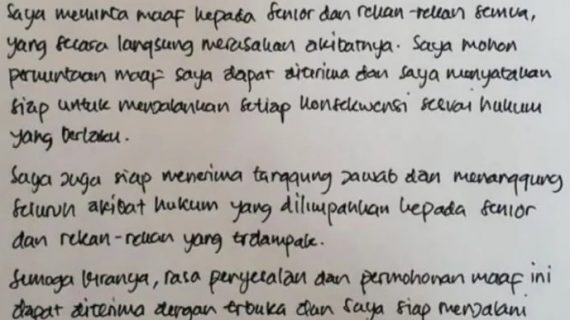 Saya meminta maaf kepada senior dan rekan-rekan semua,
yang secara langsung merasakan akibatnya. Saya mohon
permintaan maaf saya dapat diterima dan saya menyatakan
siap untuk menjalankan setiap konsekwensi sesuai hukum
yang berlaku.
Saya juga siap menerima tanggung jawab dan menanggung
seluruh akibat hukum yang dilimpahkan kepada senior
dan rekan-rekan yang terdampak.
Semoga kiranya, rasa penyesalan dan permohonan maaf ini
dapat diterima dengan terbuka dan saya siap menjalani